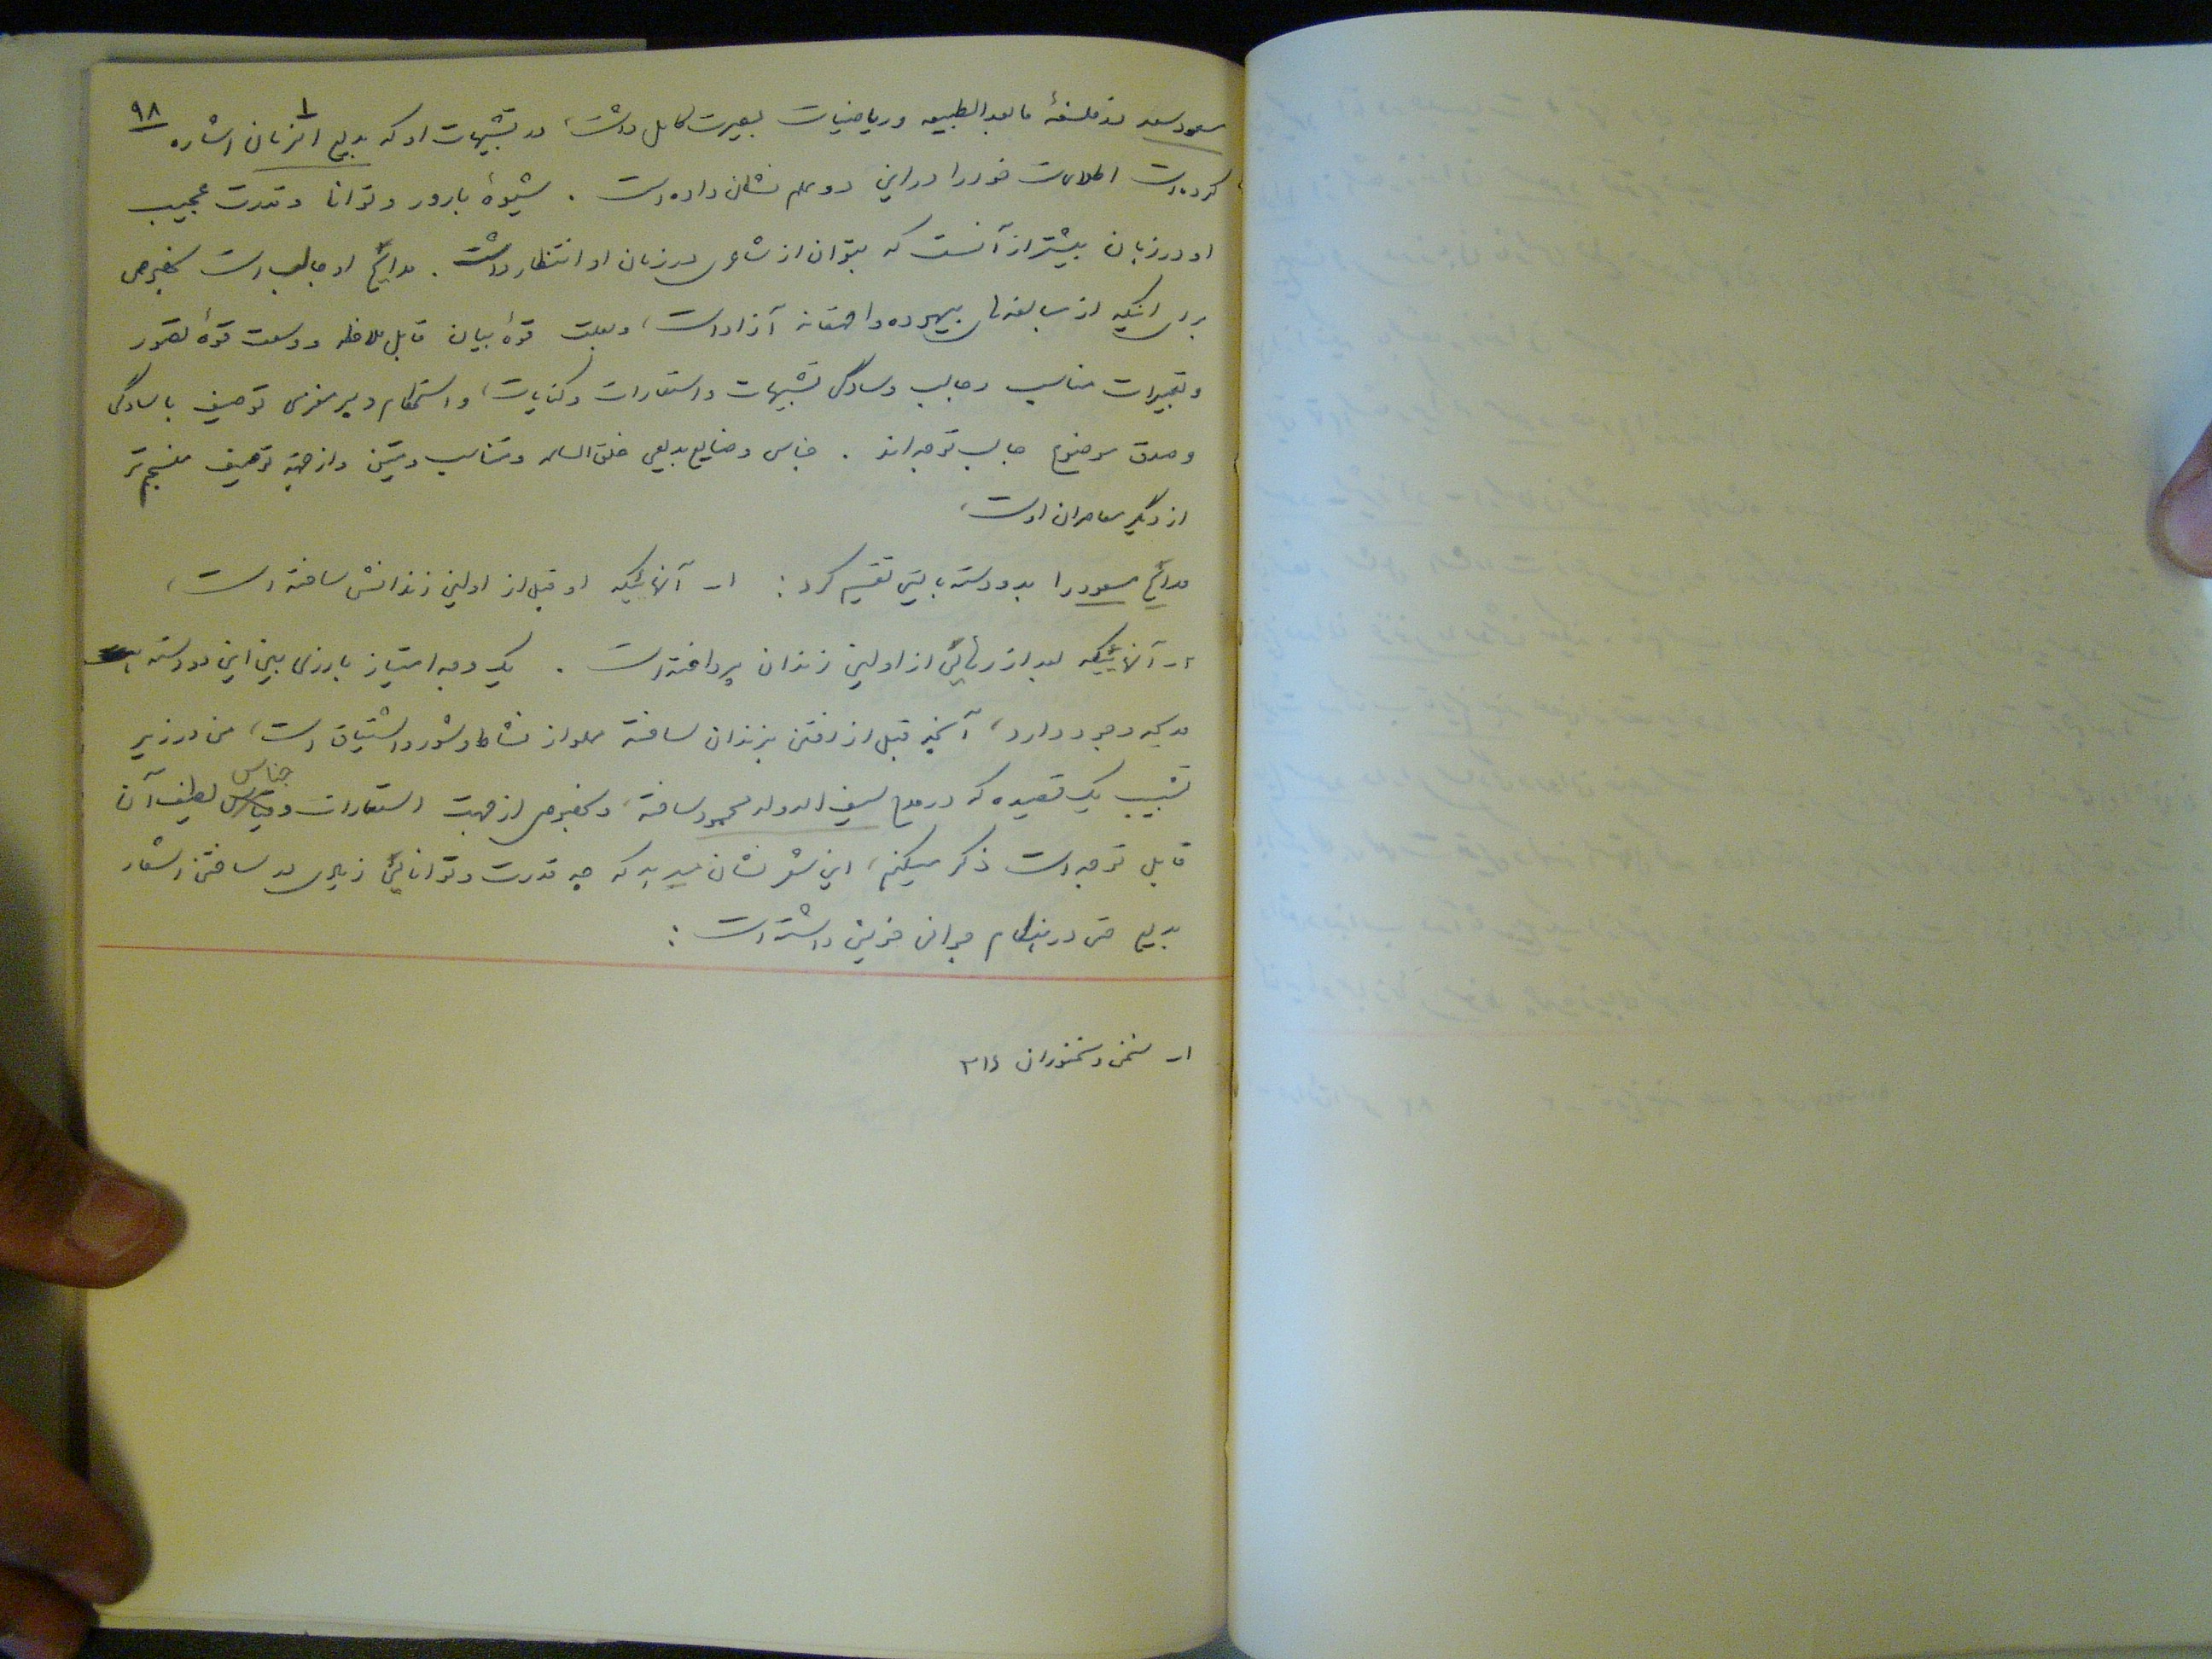 ۹۸
مسعود سعد در فلسفهٔ مابعد الطبیعه و ریاضیات بصیرت کامل داشت، در تشبیهات او که بدیع الزمان۱ اشاره
کرده است اطلاعات خود را در این دو علم نشان داده است . شیوهٔ بارور و توانا و قدرت عجیب
او در زبان بیشتر از آنست که بتوان از شاعری در زمان او انتظار داشت . مدائح او جالب است بخصوص
برای اینکه از مبالغه‌های بیهوده و احمقانه آزاد است، و بعلت قوهٔ بیان قابل ملاحظه و وسعت قوهٔ تصور
و تعبیرات مناسب و جالب و سادگی تشبیهات و استعارات و کنایات، و استحکام و پر مغزی توصیف با سادگی
و صدق موضوع جالب توجه‌اند . جناس و صنایع بدیعی خلق الساعه و متناسب و متین و از جهة توصیف منسجم تر
از دیگر معاصران اوست،
مدائح مسعود را بدو دسته بایستی تقسیم کرد : ۱- آنهائیکه او قبل از اولین زندانش ساخته است،
۲- آنهائیکه بعد از رهائی از اولین زندان پرداخته است . یک وجه امتیاز بارزی بین این دو دسته
مدیحه وجود دارد، آنچه قبل از رفتن بزندان ساخته مملو از نشاط و شور و اشتیاق است، من در زیر
تشبیب یک قصیده که در مدح سیف الدوله محمود ساخته، و بخصوص از جهت استعارات و جناس لطیف آن
قابل توجه است ذکر میکنم، این شعر نشان میدهد که چه قدرت و توانائی زیادی در ساختن اشعار
بدیع حتی در هنگام جوانی خویش داشته است :
۱- سخن و سخنوران ۲۱۶